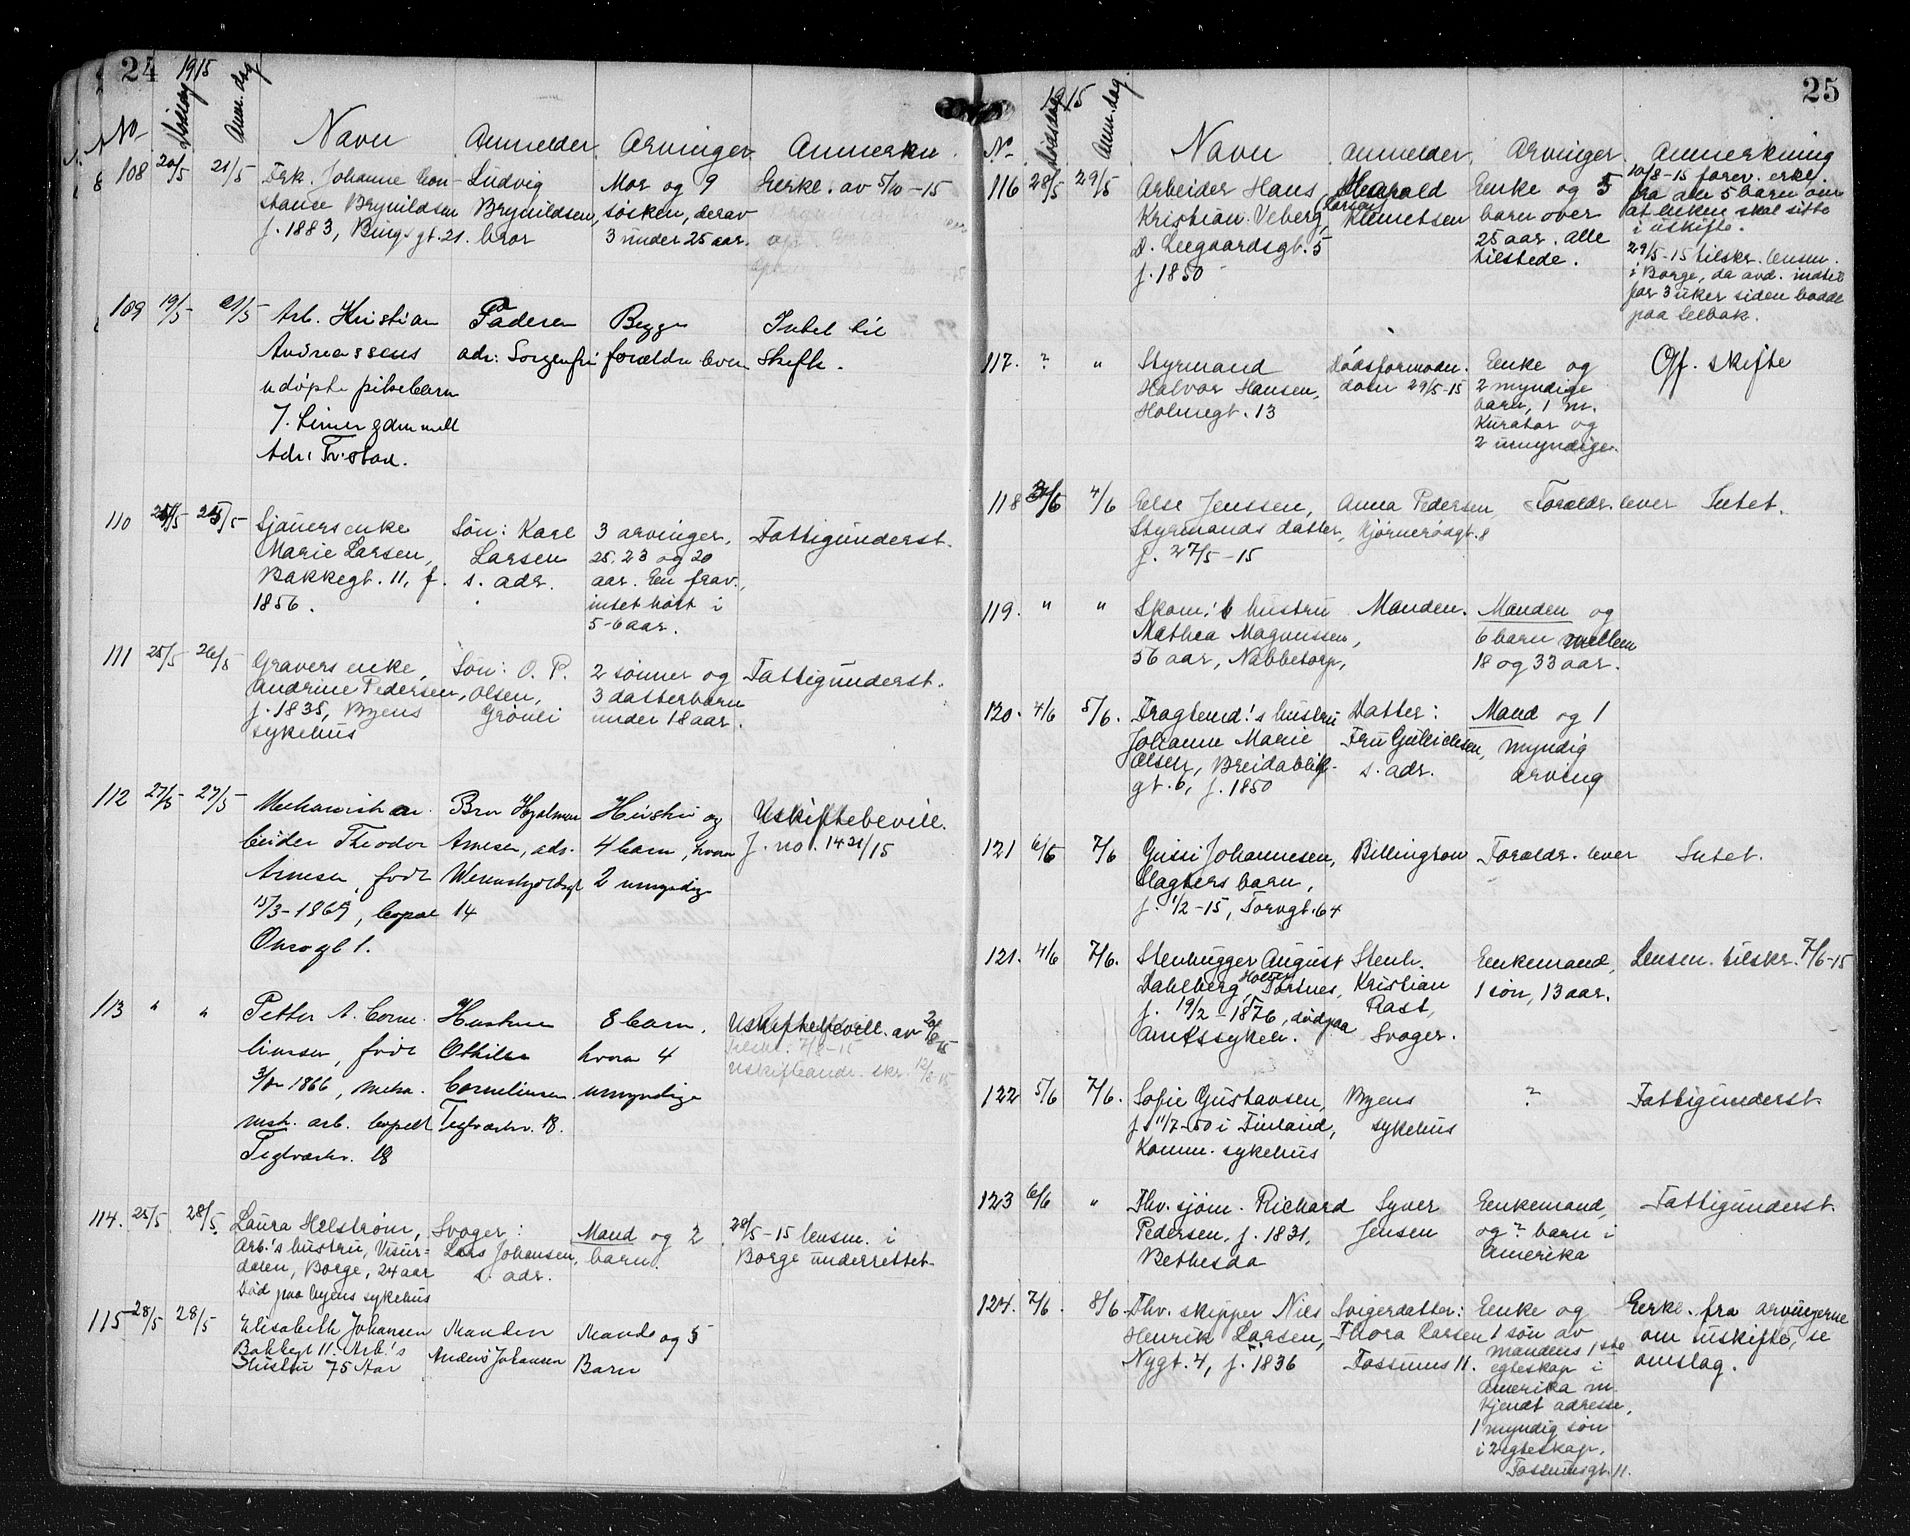 24
1915
No
Dödsdag
Anm. dag
Navn
Anmelder
Arvinger
Anmerkn.
108 20/5 21/5
Frk. Johanne Con-
stanse Brynildsen
f. 1883, Bingsgt. 21.
Ludvig
Brynildsen,
bror
Mor og 9
søsken, derav
3 under 25 aar.
Eerkl. av 5/10-15
109 19/5 21/5
Arb. Kristian
Andreassens
udöpte pikebarn
7. timer gammelt
Adr: Fr:stad.
Faderen
adr: Sorgenfri
Begge
forældre lever
Intet til
Skifte.
110 24/5 25/5
Sjauers enke
Marie Larsen,
Bakkegt. 11, f.
1856.
Søn: Karl
Larsen
s. adr.
3 arvinger,
25, 23 og 20
aar. En frav.,
intet hørt i
5-6 aar.
Fattigunderst.
111 25/5 26/5
Gravers enke,
Andrine Pedersen,
f. 1835, Byens
sykehus
Søn: O. P.
Olsen,
Grönli
2 sønner og
3 datterbarn
under 18 aar.
Fattigunderst.
112 27/5 27/5
Mekanisk ar.
beider Theodor
Arnesen, född
15/3-1869, bopæl
Onsøgt 1.
Bror Hjalmar
Arnesen, adr.
Wernskjoldsgt
14
Hustru og
4 barn, hvorav
2 umyndige
Uskiftebevill.
J. no. 1421/15
113 " "
Petter A. Corne.
liussen, född
1866, meka.
nisk. arb. bopæl
Teglverksv. 18
Hustruen
Othilie
Corneliussen
Teglverksv. 18.
8 barn,
hvorav 4
umyndige
Uskiftebevill. av 20/8 15
Tilskr: 7/8-15
Uskifteandr. skr. 12/8 15
114. 25/5 28/5
Laura Helstrøm,
Arb.'s hustru, Visur-
dalen, Borge, 24 aar
Död paa byens sykehus
Svoger:
Lars Johansen,
s. adr.
Mand og 2
barn.
28/5-15 lensm. i
Borge underrettet
115 28/5 28/5
Elisabeth Johansen
Bakkegt 11. Arb.'s
Hustru 75 Aar
Manden
Anders Johansen
Mand og 5
Barn
25
1915
No
Dödsdag
Anm. dag
Navn
Anmelder
Arvinger
Anmerkning
116 28/5 29/5
Arbeider Hans
Kristian Veberg,
D. Leegaardsgt. 5
f. 1850
Harald
Larsen
Klemetsen
Enke og 5
barn over
25 aar. Alle
tilstede.
10/8-15 forev. erkl.
fra alle 5 barn om
at enken skal sitte
i uskifte.
29/5-15 tilskr. lensm.
i Borge, da avd. indtil
for 3 uker siden bodde
paa Selbak.
117. ? "
Styrmand
Halvor Hansen,
Holmegt. 13
Dödsformodn.
dom 29/5-15
Enke og
2 myndige
barn, 1 m.
Kurator og
2 umyndige.
Off. skifte
118 3/6 4/6
Else Jenssen,
Styrmands datter,
f. 27/5-15
Anna Pedersen
Kjørnerödgt. 8
Foraldr. lever
Intet.
119. " "
Skom.'s hustru
Mathea Magnussen,
56 aar, Nabbetorp,
Manden.
Manden og
6 barn mellem
18 og 33 aar.
120. 4/6 5/6.
Fragtemd.'s hustru
Johanne Marie
Olsen, Breidablik-
gt. 6, f. 1850
Datter:
Fru Gulliksen,
s. adr.
Mand og 1
myndig
arving
121 6/6 7/6
Gussi Johannesen,
Slagters barn,
f. 1/2-15, Torvgt. 64
Billington
Foraldr. lever
Intet.
121. 4/6 7/6.
Stenhugger August
Dahlberg, Holsen,
Torsnes,
f. 19/2-1876, död paa
Amtssykeh.
Stenh.
Kristian
Rast,
Svoger.
Enkemand,
1 søn, 13 aar.
Lensm. tilskr. 7/6-15
122 5/6 7/6.
Sofie Gustavsen,
f. 11/7-50 i Finland,
Komm. sykehus
Byens
sykehus
?
Fattigunderst.
123 6/6 "
Fhv. sjöm. Richard
Pedersen, f. 1831,
Bethesda
Syver
Jensen
Enkemand,
og ? barn i
Amerika
Fattigunderst.
124. 7/6. 8/6.
Fhv. skipper Nils
Henrik Larsen,
Nygt. 4, f. 1836
Svigerdatter:
Thora Larsen
Fossums 11.
Enke og
1 søn av
mandens 1ste
egteskap i
Amerika m.
kjendt adresse,
1 myndig søn
i 2 egteskap,
Fossumsgt. 11.
Eerkl. fra arvingerne
om uskifte, se
omslag.